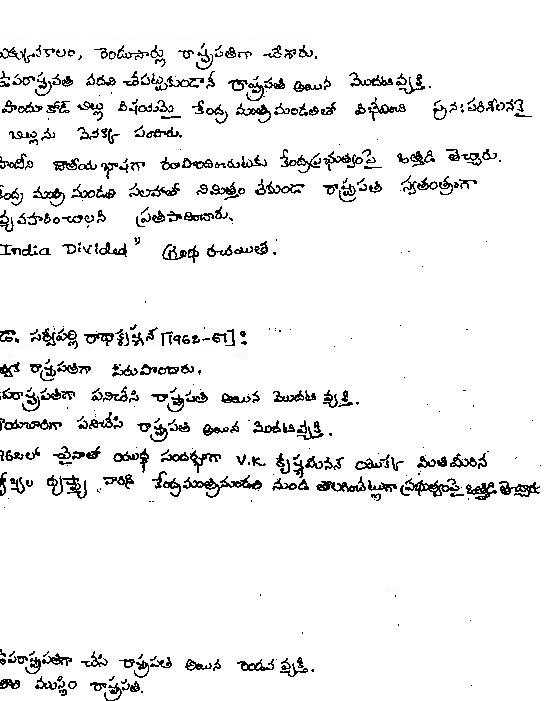 ఎక్కువకాలం, రెండుసార్లు రాష్ట్రపతిగా చేశారు.
ఉపరాష్ట్రపతి పదవి చేపట్టకుండానే రాష్ట్రపతి అయిన మొదటి వ్యక్తి.
హిందూ కోడ్ బిల్లు విషయమై కేంద్ర మంత్రిమండలితో విభేదించి పునఃపరిశీలనకై
బిల్లును వెనక్కి పంపారు.
హిందీని జాతీయ భాషగా రూపొందించుటకు కేంద్రప్రభుత్వంపై ఒత్తిడి తెచ్చారు.
కేంద్ర మంత్రి మండలి సలహాతో నిమిత్తం లేకుండా రాష్ట్రపతి స్వతంత్రంగా
వ్యవహరించాలని ప్రతిపాదించారు.
"India Divided" గ్రంథ రచయిత.
డా. సర్వేపల్లి రాధాకృష్ణన్ [1962-67] :
రాష్ట్రపతిగా పేరుపొందారు.
ఉపరాష్ట్రపతిగా పనిచేసి రాష్ట్రపతి అయిన మొదటి వ్యక్తి.
రాయబారిగా పనిచేసి రాష్ట్రపతి అయిన మొదటివ్యక్తి.
1962లో చైనాతో యుద్ధ సందర్భంగా V.K. కృష్ణమీనన్ యొక్క మితిమీరిన
దృష్ట్యా వారిని కేంద్రమంత్రిమండలి నుండి తొలగించేట్లుగా ప్రభుత్వంపై ఒత్తిడి తెచ్చారు
ఉపరాష్ట్రపతిగా చేసి రాష్ట్రపతి అయిన రెండవ వ్యక్తి.
తొలి ముస్లిం రాష్ట్రపతి.